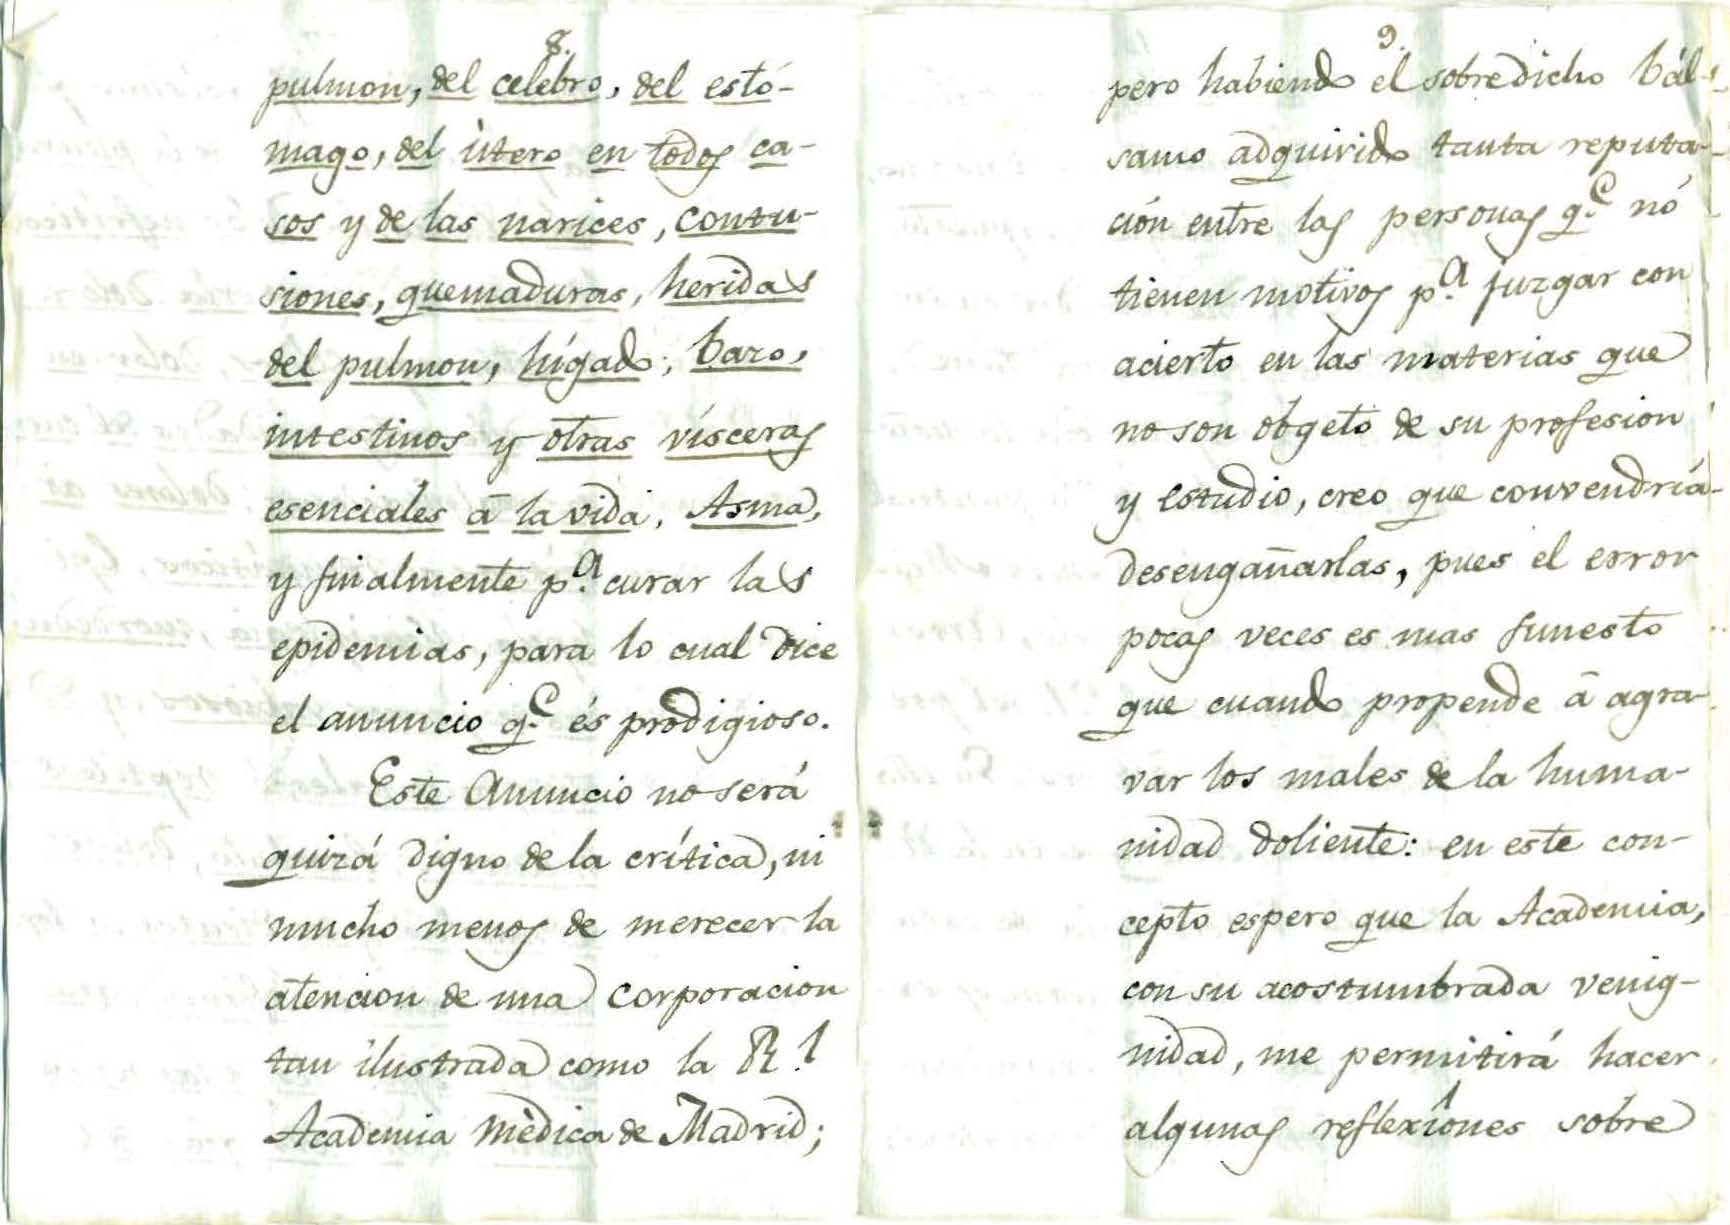 8.
pulmon, del celebro, del estó-
mago, del ùtero en todos ca-
sos y de las narices, contu-
siones, quemaduras, heridas
del pulmon, hígado, bazo,
intestinos y otras vísceras
esenciales ā la vida, Asma,
y finalmente p.ª curar las
epidemias, para lo cual dice
el anuncio q.e és prodigioso.
Este Anuncio no será
quizá digno de la crítica, ni
mucho menos de merecer la
atencion de una corporacion
tan ilustrada como la R.l
Academia Mèdica de Madrid;
9.
pero habiendo el sobredicho bál-
samo adquirido tanta reputa-
ción entre las personas q.e nó
tienen motivos p.ª juzgar con
acierto en las materias que
no son obgeto de su profesion
y estudio, creo que convendriá
desengañarlas, pues el error
pocas veces es mas funesto
que cuando propende ā agra-
var los males de la huma-
nidad doliente: en este con-
cepto espero que la Academia,
con su acostumbrada venig-
nidad, me permitirá hacer
algunas reflexîones sobre